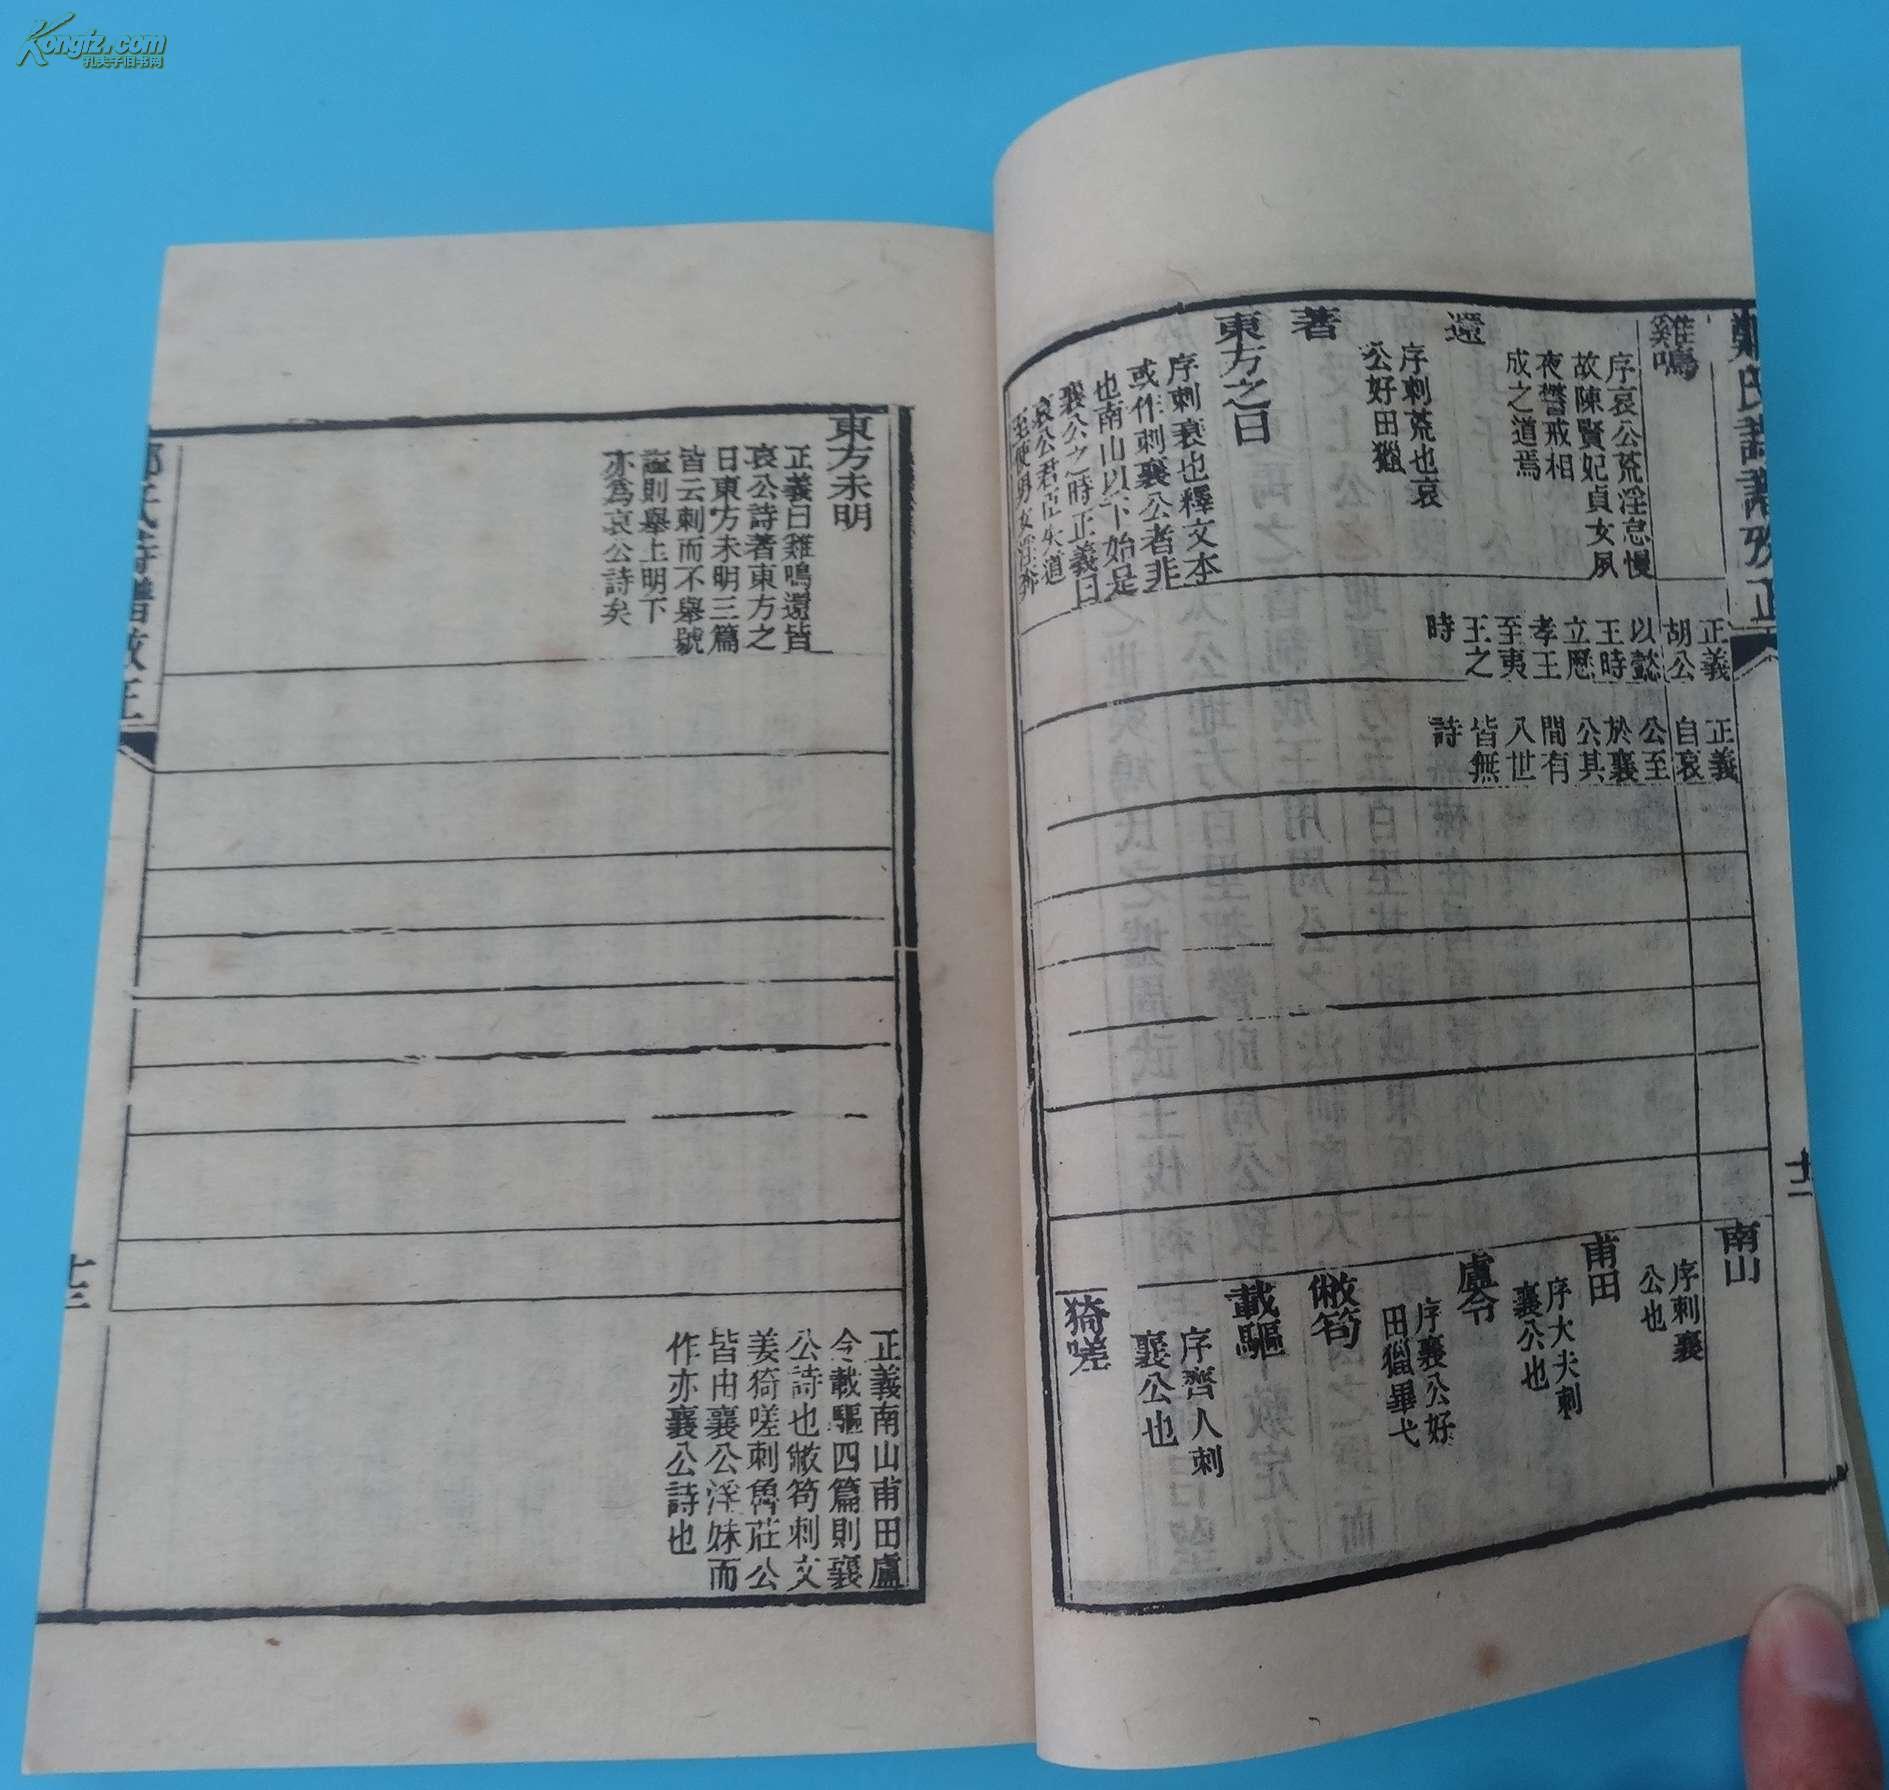 Kongfz.com
孔夫子旧书网
鄭氏詩譜攷正
十二
雞鳴
序哀公荒淫怠慢
故陳賢妃貞女夙
夜警戒相
成之道焉
還
序刺荒也哀
公好田獵
著
東方之日
序刺衰也釋文本
或作刺襄公者非
也南山以下始是
襄公之時正義曰
哀公君臣失道
至使男女淫奔
正義
胡公
以懿
王時
立歷
孝王
至夷
王之
時
正義
自哀
公至
於襄
公其
間有
八世
皆無
詩
南山
序刺襄
公也
甫田
序大夫刺
襄公也
盧令
序襄公好
田獵畢弋
敝笱
載驅
序齊人刺
襄公也
猗嗟
東方未明
正義曰雞鳴還皆
哀公詩著東方之
日東方未明三篇
皆云刺而不舉號
謚則舉上明下
亦為哀公詩矣
正義南山甫田盧
令載驅四篇則襄
公詩也敝笱刺文
姜猗嗟刺魯莊公
皆由襄公淫妹而
作亦襄公詩也
十三